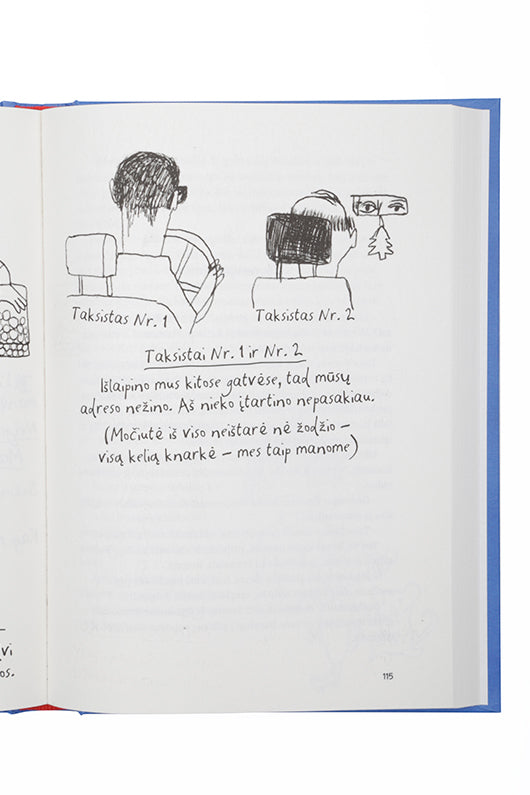 Taksistas Nr. 1
Taksistas Nr. 2
Taksistai Nr. 1 ir Nr. 2
Išlaipino mus kitose gatvėse, tad mūsų
adreso nežino. Aš nieko įtartino nepasakiau.
(Močiutė iš viso neištarė nė žodžio –
visą kelią knarkė – mes taip manome)
115